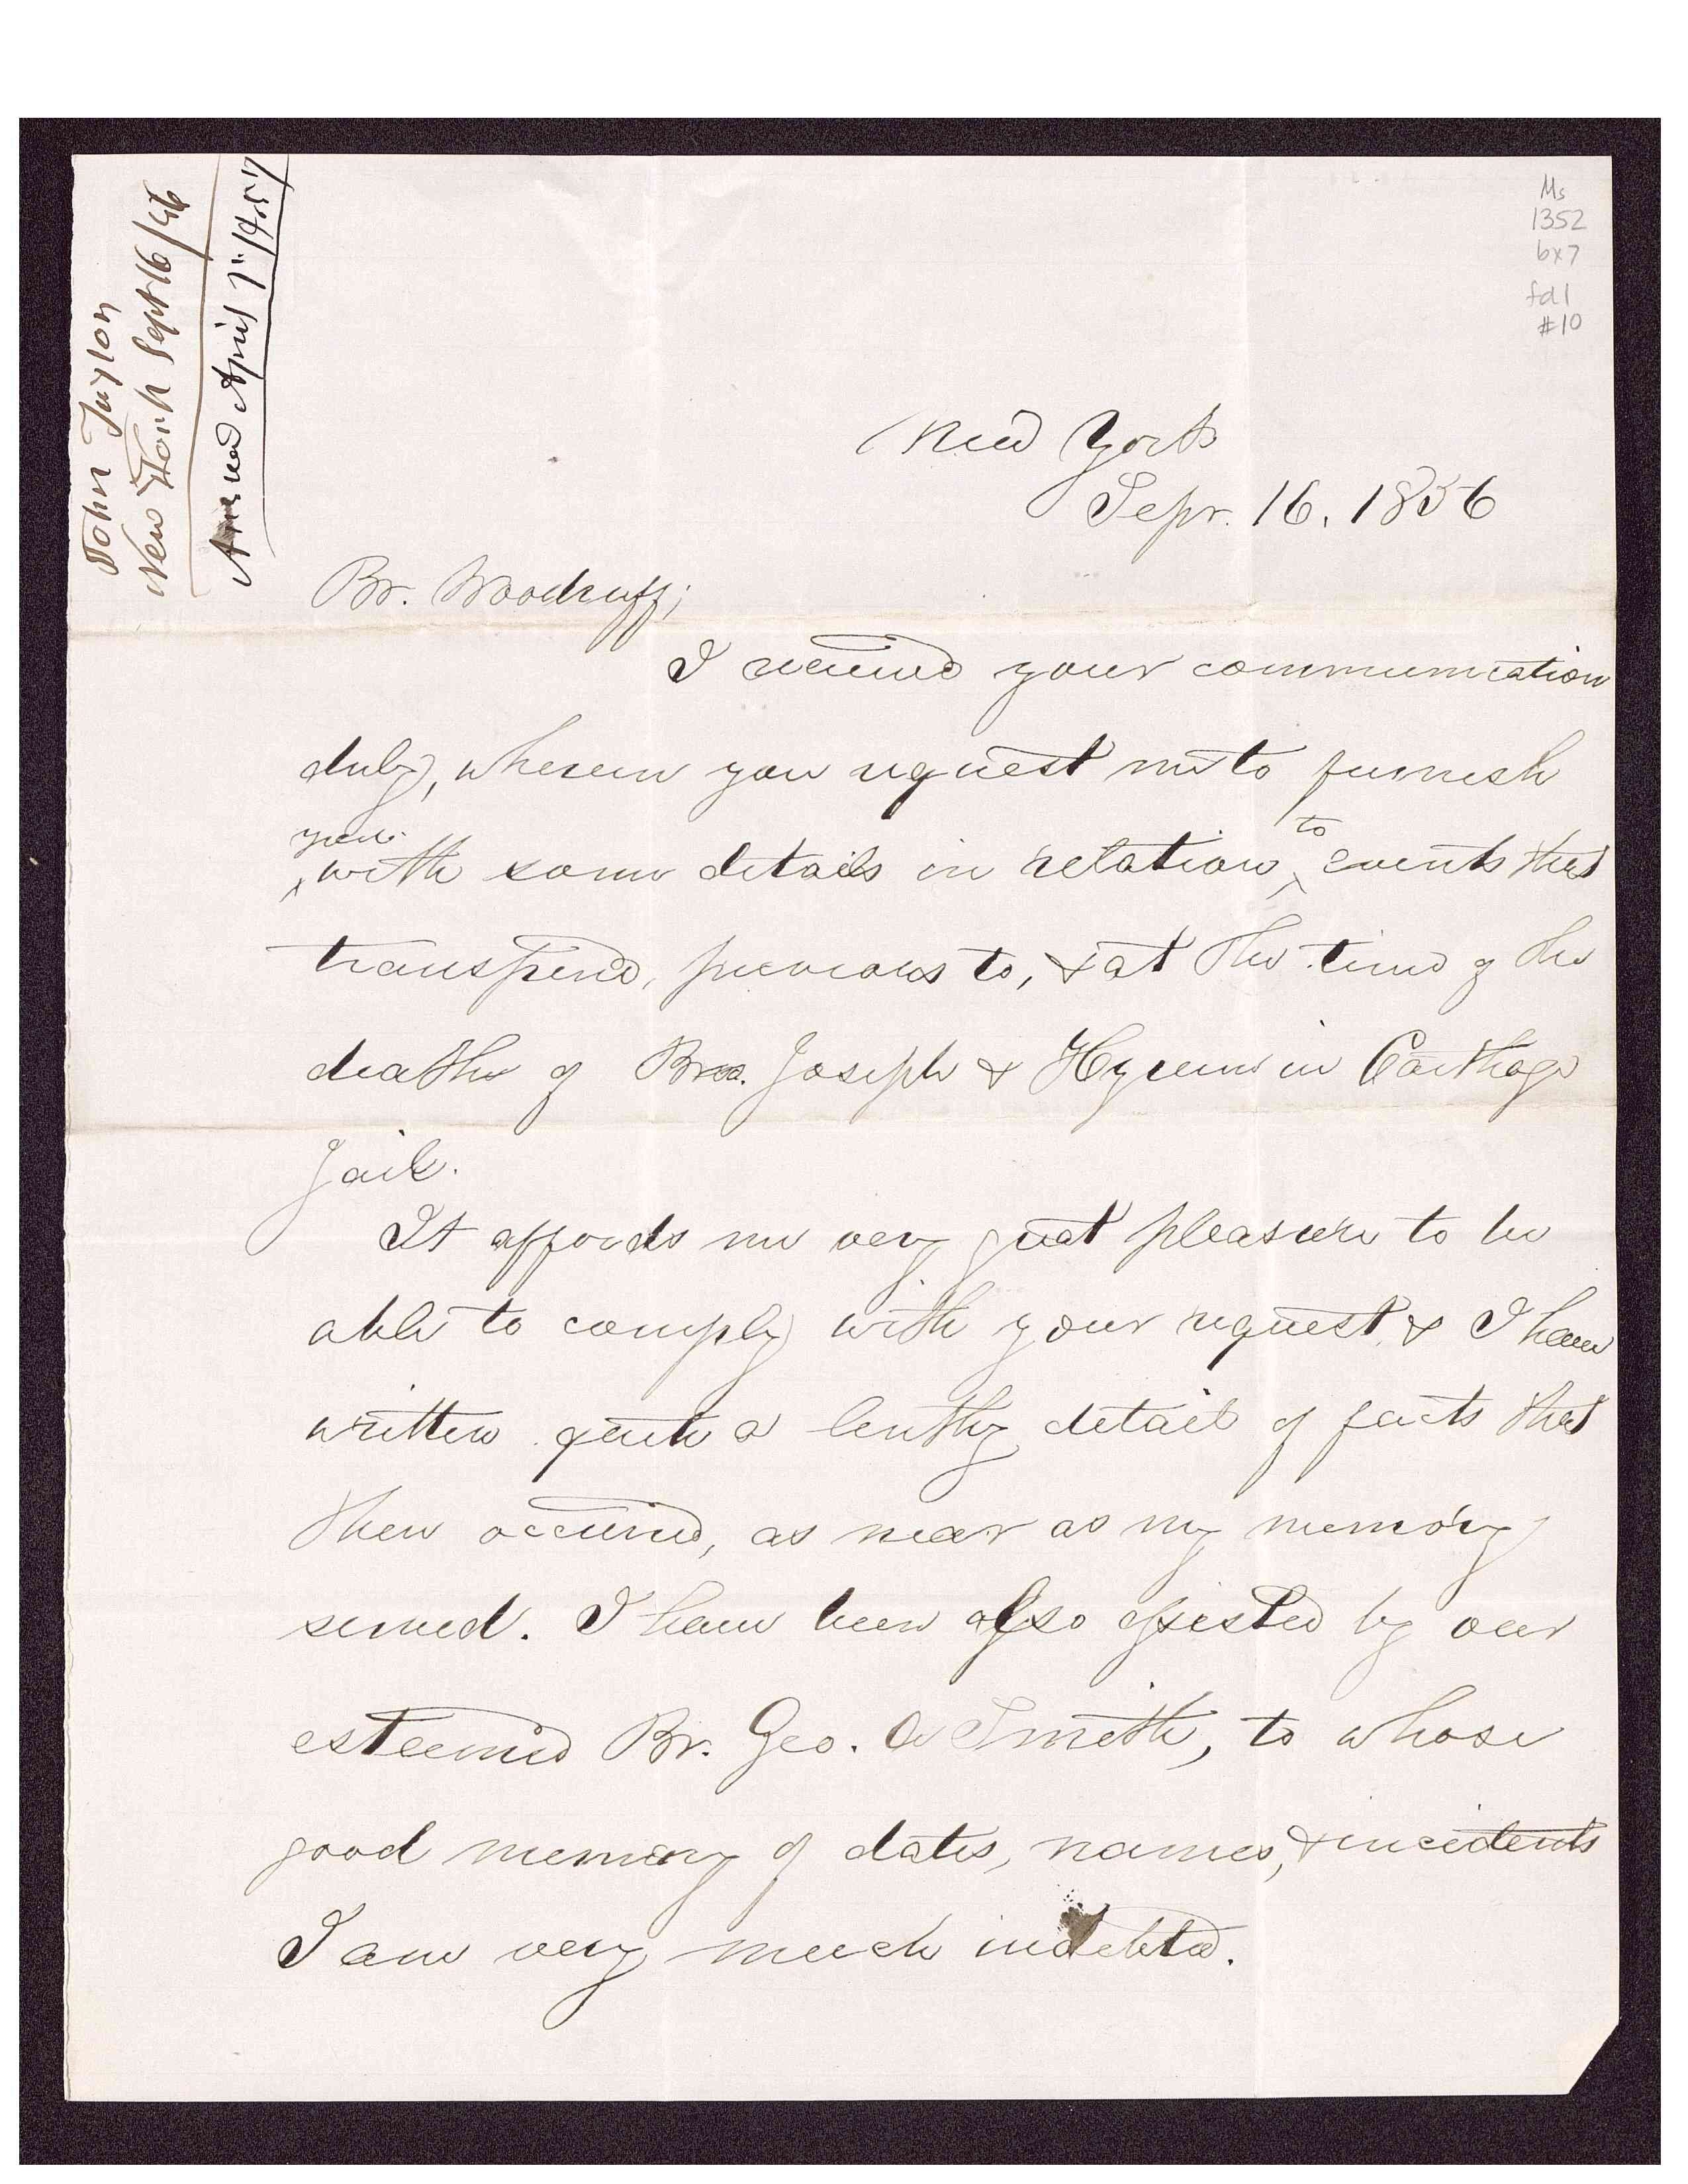 John Taylor
New York Sept 16/56
April 1" 1857
Ms
1352
bx7
fd1
#10
New York
Sepr. 16. 1856
Br. Woodruff;
I received your communication
duly, wherein you request me to furnish
you
with some details in relation to events that
transpired, previous to, & at the time of the
deaths of Bros. Joseph & Hyrum in Carthage
Jail.
It affords me very great pleasure to be
able to comply with your request, & I have
written quite a lenthy detail of facts that
then occurred, as near as my memory
served. I have been also assisted by our
esteemed Br. Geo. A Smith, to whose
good memory of dates, names, & incidents
I am very much indebted.